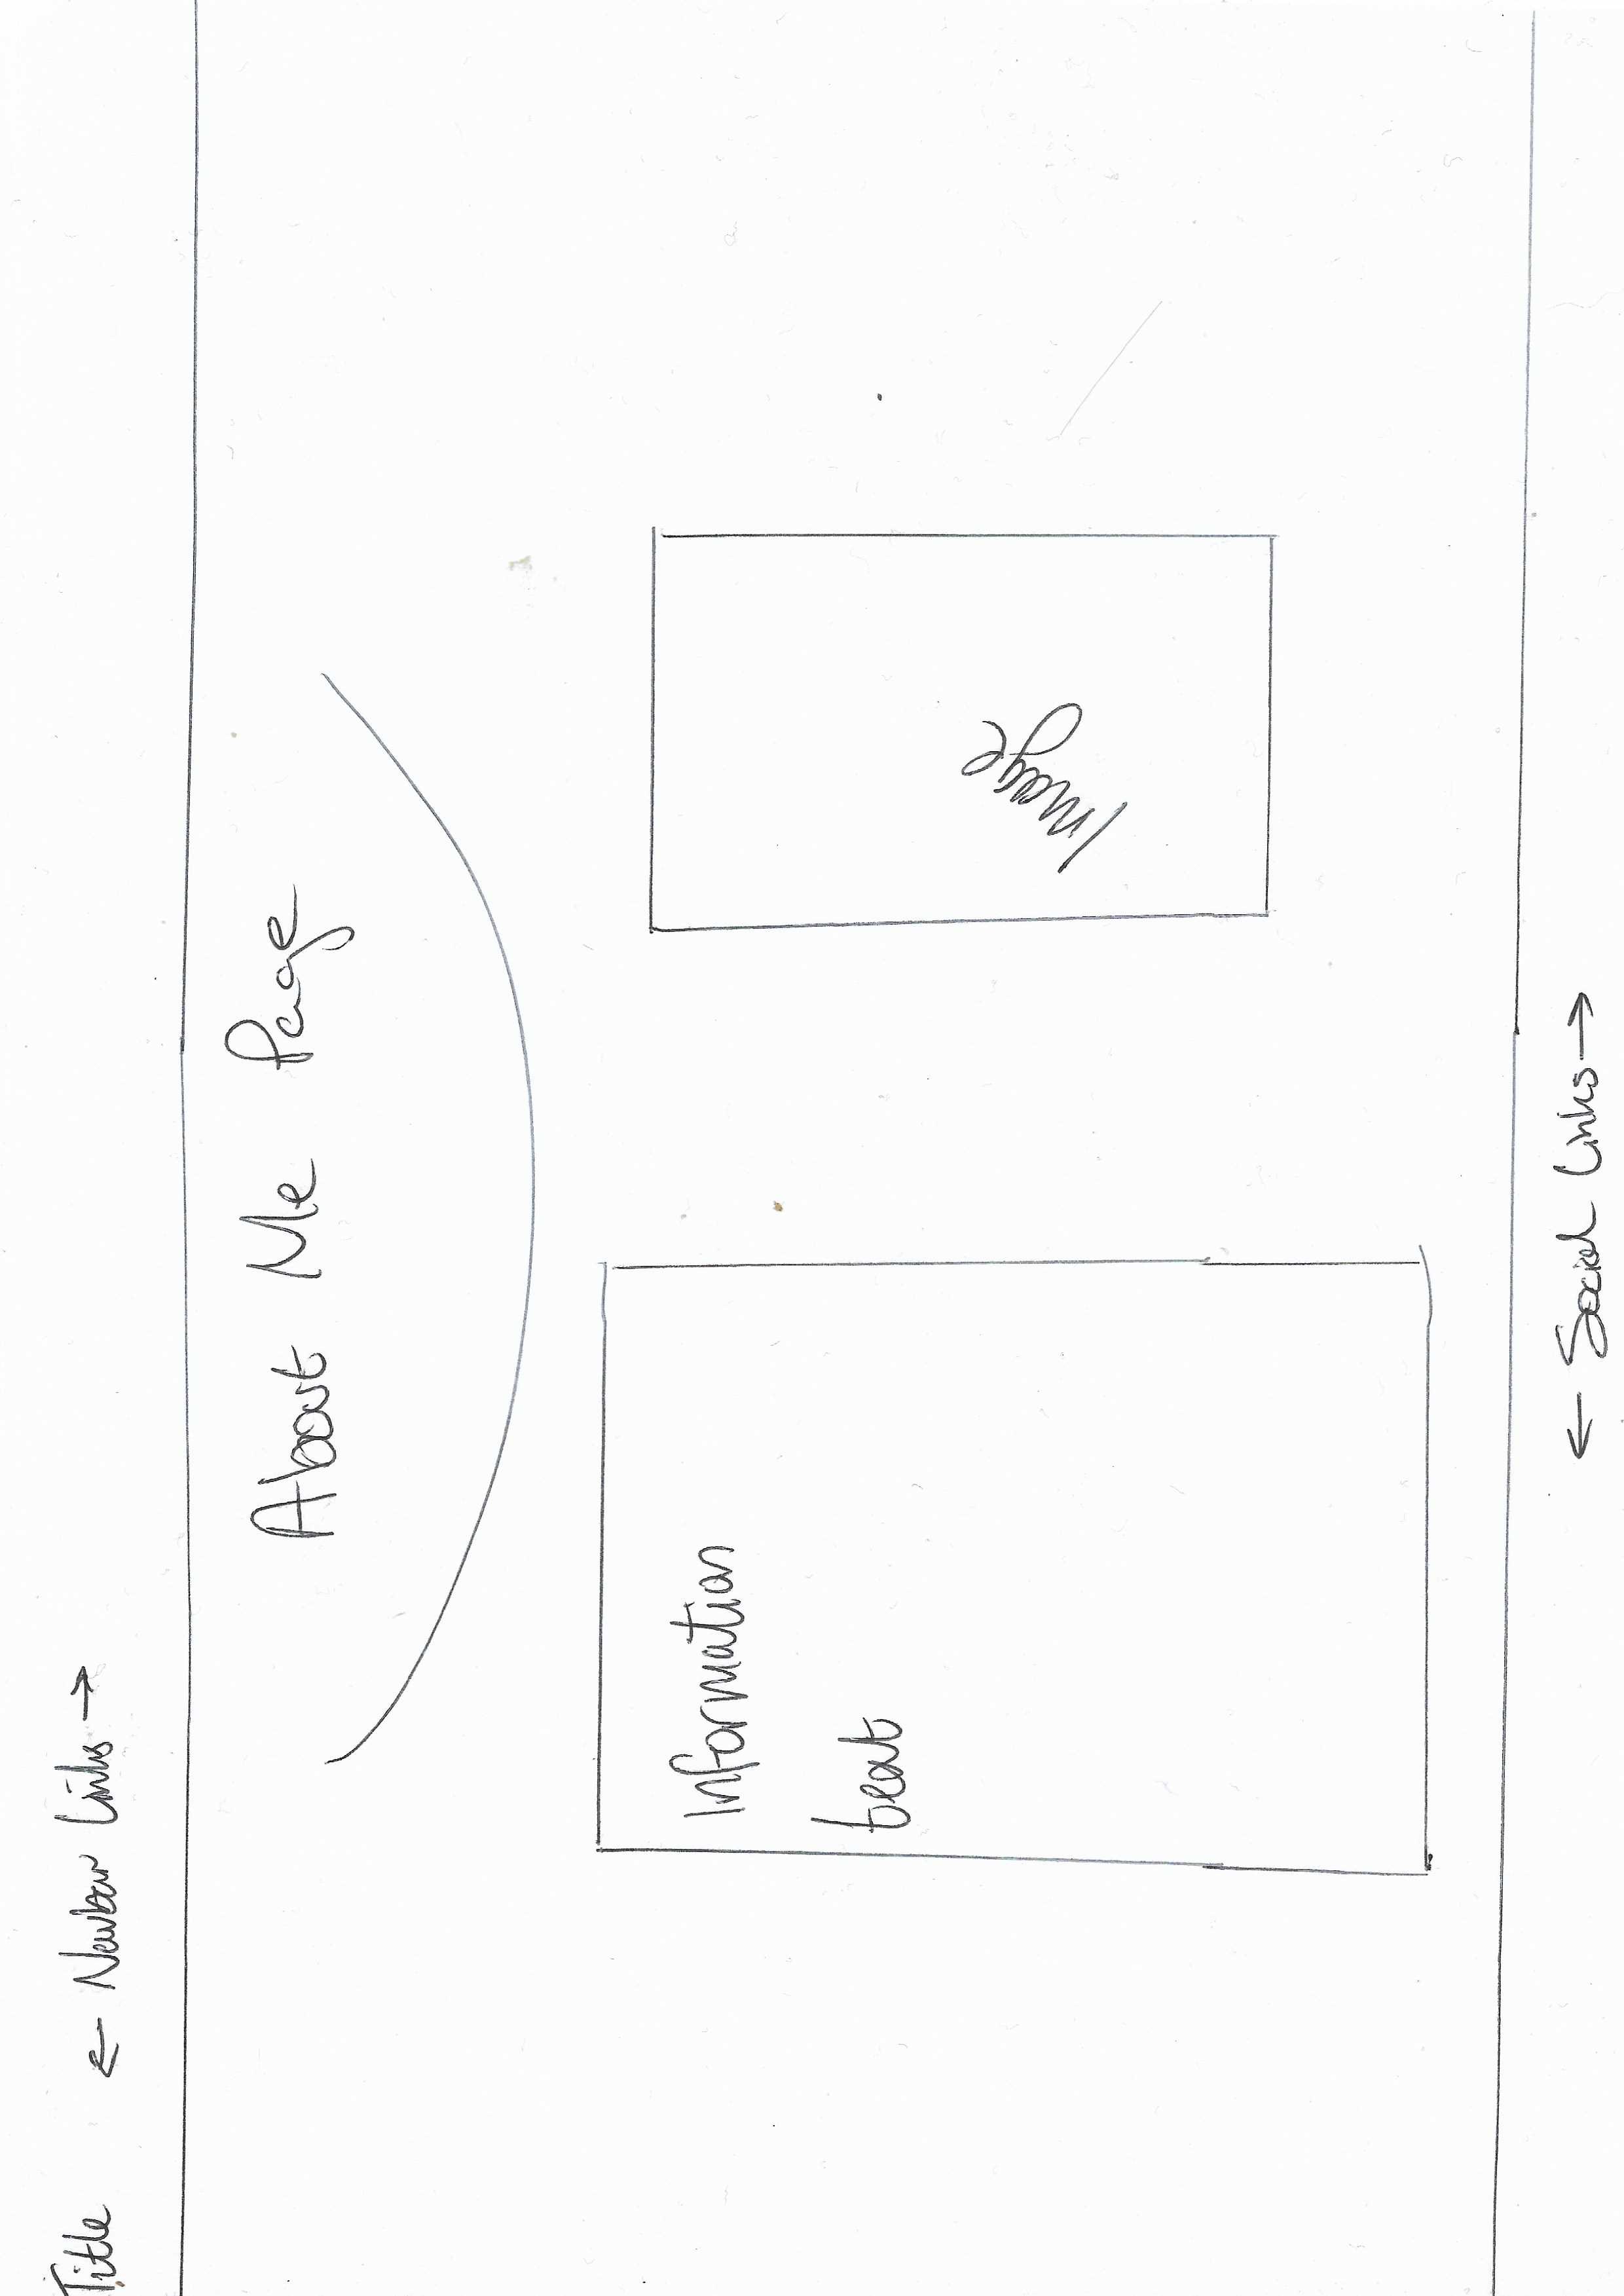 Title ← Navbar Links →
About Me Page
Information
text
Image
← Social Links →